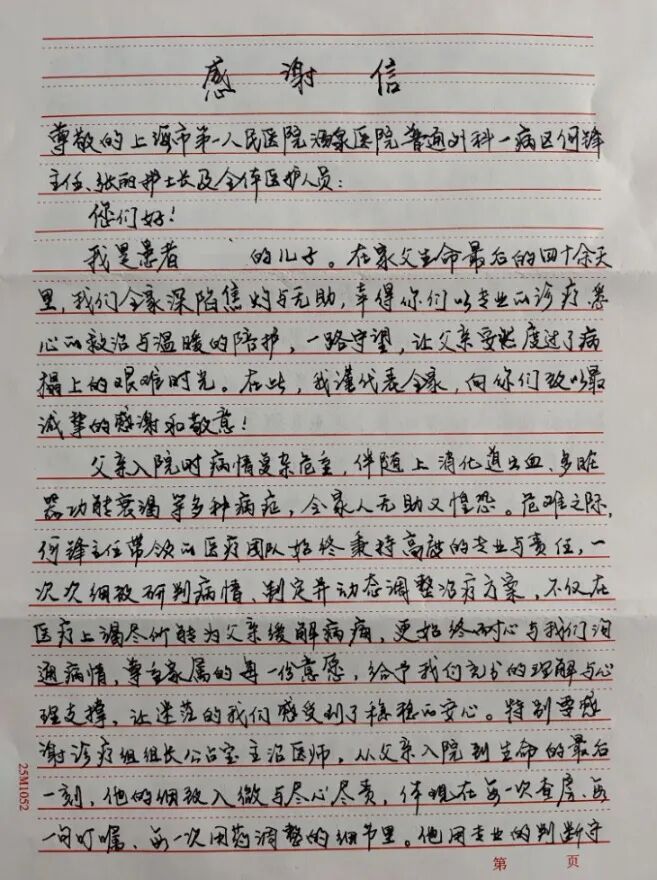 感谢信
尊敬的上海市第一人民医院酒泉医院普通外科一病区何锋
主任、张丽护士长及全体医护人员:
你们好!
我是患者 的儿子。在家父生命最后的四十余天
里,我们全家深陷焦灼与无助,幸得你们以专业的诊疗、悉
心的救治与温暖的陪护,一路守望,让父亲安然度过了病
榻上的艰难时光。在此,我谨代表全家,向你们致以最
诚挚的感谢和敬意!
父亲入院时病情复杂危重,伴随上消化道出血、多脏
器功能衰竭等多种病症,全家人无助又惶恐。危难之际,
何锋主任带领的医疗团队始终秉持高度的专业与责任,一
次次细致研判病情、制定并动态调整治疗方案,不仅在
医疗上竭尽所能为父亲缓解病痛,更始终耐心与我们沟
通病情,尊重家属的每一份意愿,给予我们充分的理解与心
理支撑,让迷茫的我们感受到了稳稳的安心。特别要感
谢诊疗组组长公占宝主治医师,从父亲入院到生命的最后
一刻,他的细致入微与尽心尽责,体现在每一次查房、每
一句叮嘱、每一次用药调整的细节里。他用专业的判断守
25M1052
第 页